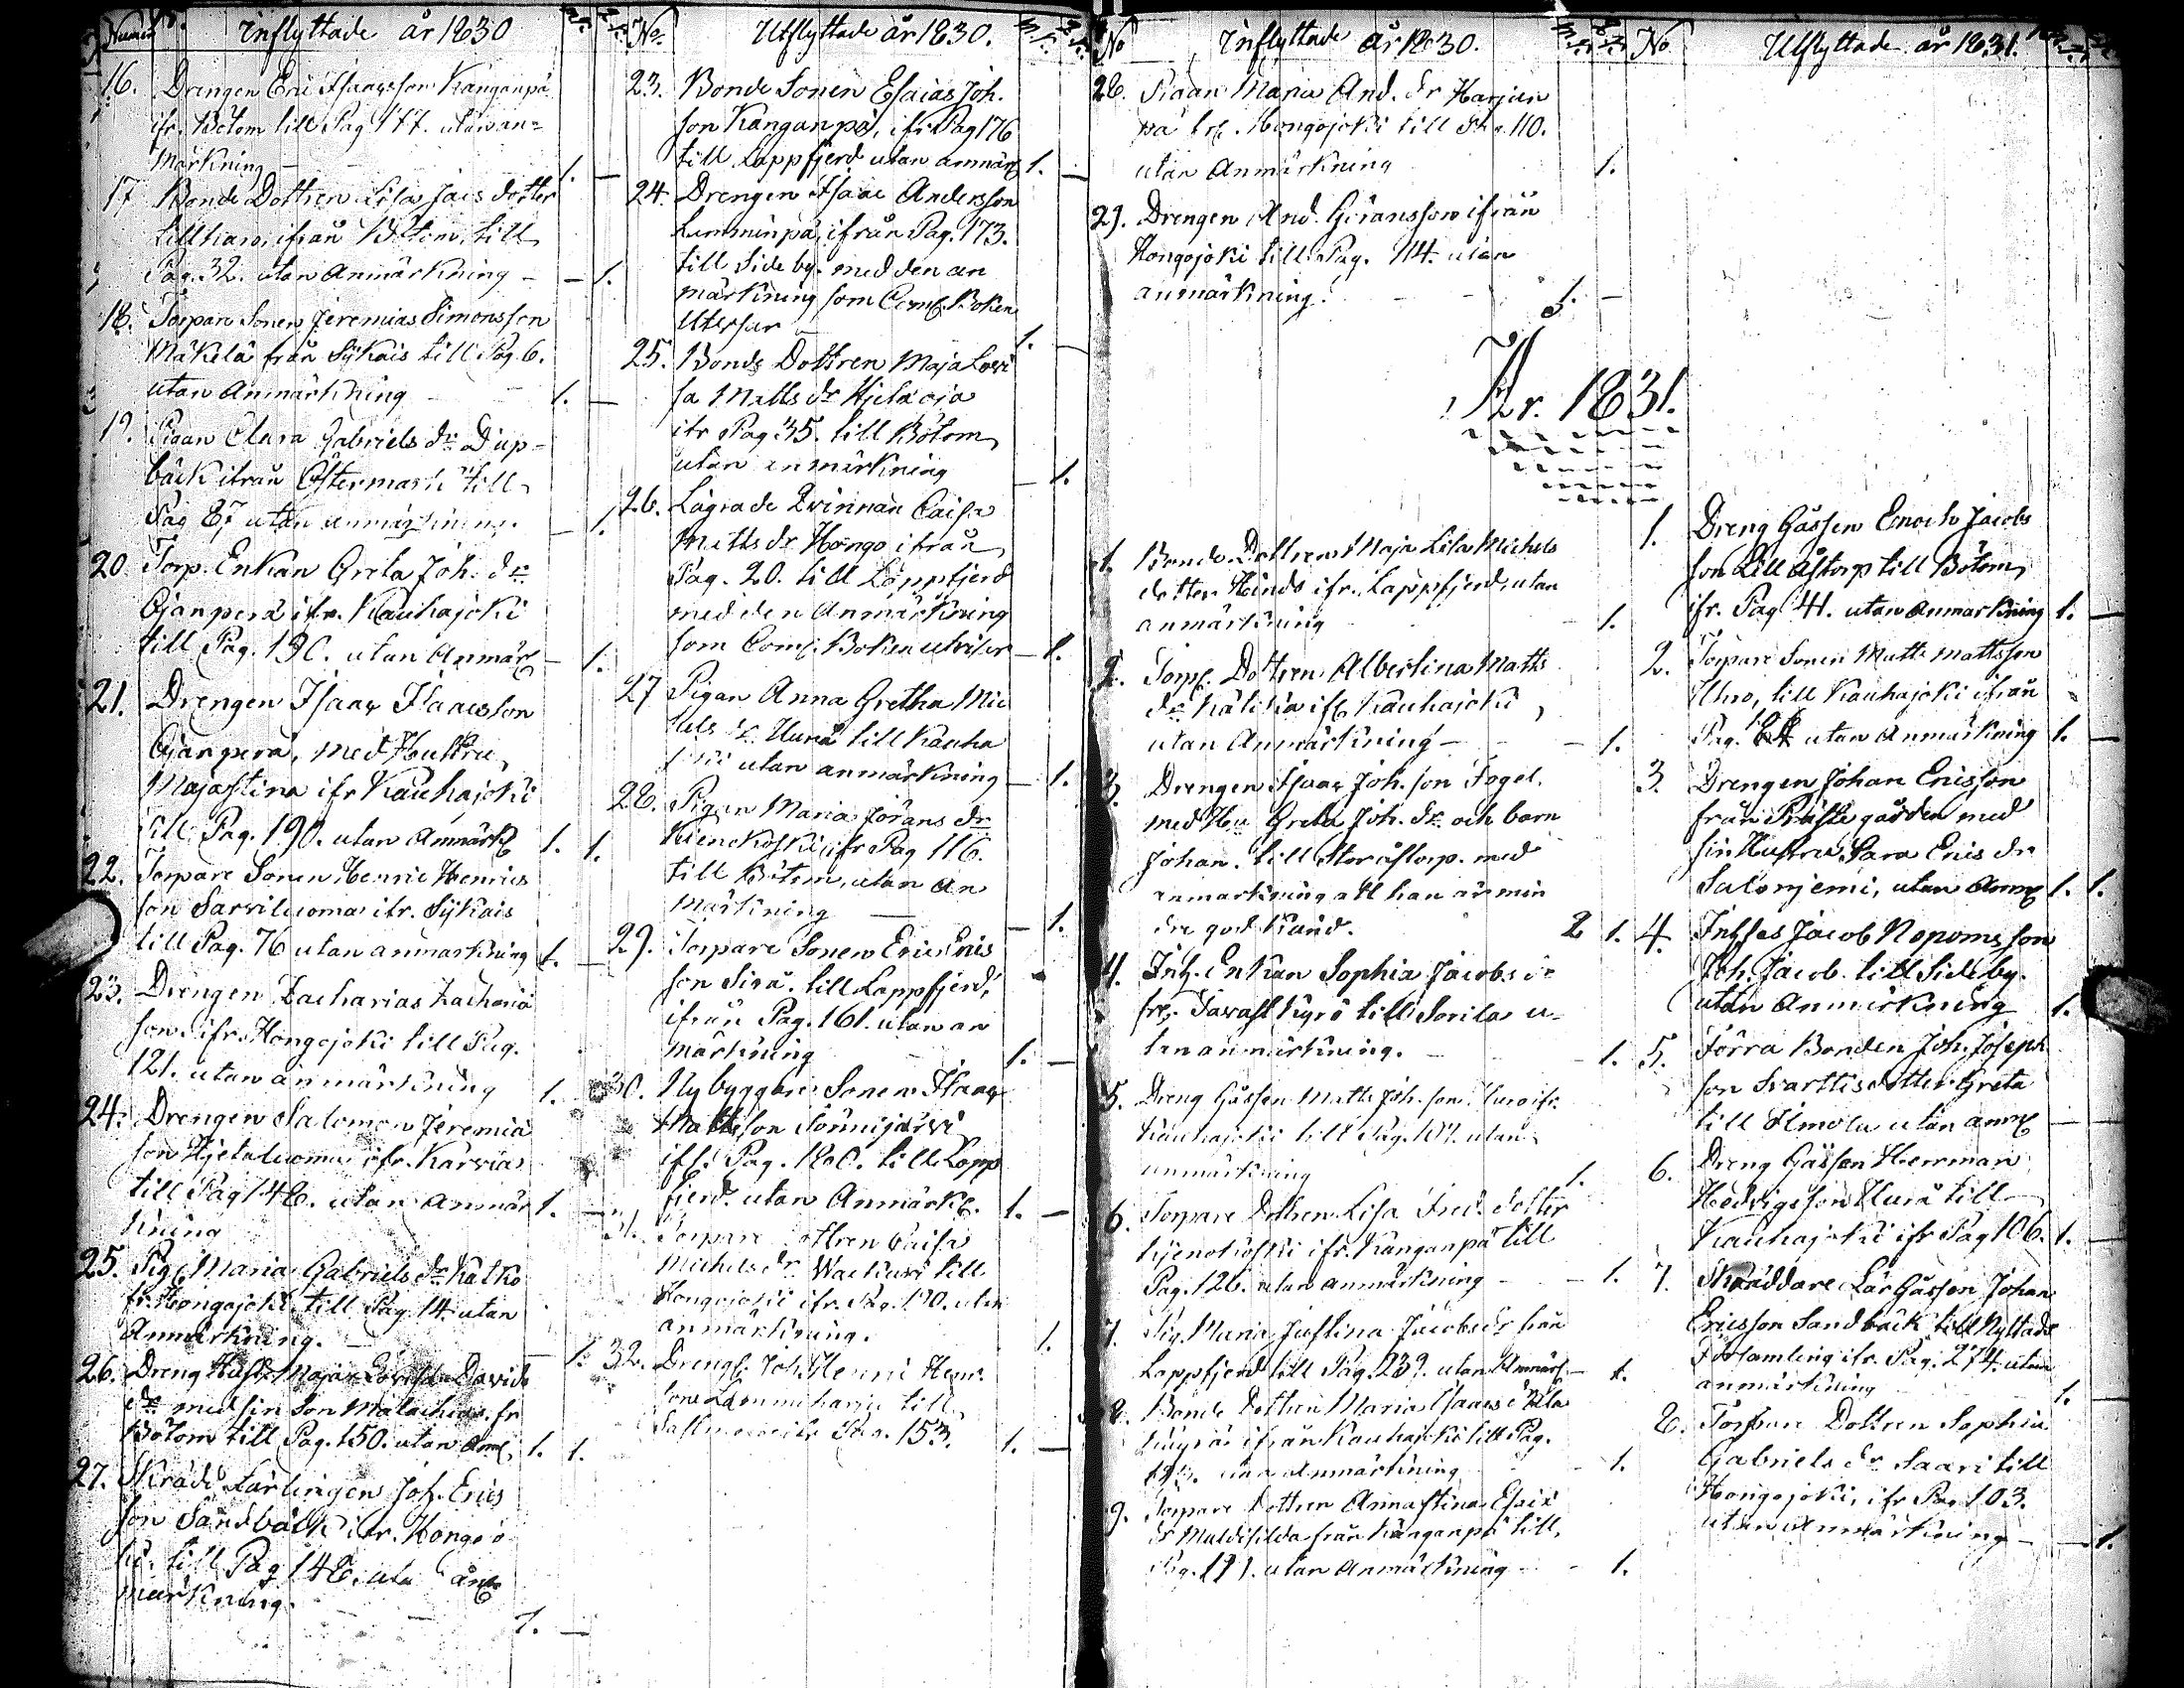 Inflyttade år 1830
16. Drengen Eric Isaacsson Kanganpä
ifr. Bötom till Pag 177. utan an=
märkning — 1. —
17 Bonde Dottren Lisa Jacs dotter
Lillkaro, ifrån Bötom, till
Pag. 32. utan Anmärkning — — 1.
18. Torpare Sonen Jeremias Simonsson
Mäkelä från Sÿkais till Pag. 6.
utan Anmärkning 1. —
19. Pigan Clara Gabriels dr Diup-
bäck ifrån Östermark till
Pag 87 utan anmärkning. — 1.
20 Torp. Enkan Greta Joh. dr
Ojanperä ifr. Kauhajoki
till Pag. 190. utan Anmärk — 1.
21. Drengen Isaac Isaacsson
Ojanperä, med Hustru
Majastina ifr Kauhajoki
till Pag. 190. utan Anmärk 1. 1.
22. Torpare Sonen Henric Henrics
son Sarviluoma ifr. Sÿkais
till Pag. 76 utan anmärkning 1. —
23. Drengen Zacharias Zacharia
son ifr. Hongojoki till Pag.
121. utan anmärkning 1.
24. Drengen Salomon Jeremia
son Hjetaluoma ifr. Karvia
till Pag 148. utan anmär 1. —
kning
25. Pig Maria Gabriels dr Katko
fr. Hongojoki till Pag 14. utan
Anmärkning. — 1.
26. Dreng Hust. Maja Lovisa Davids
dr med sin Son Malachias fr
Bötom till Pag. 150. utan Anm. 1. 1.
27. Skräd. Lärlingen Joh. Erics
son Sandbäck ifr. Hongojo
ki. till Pag 148. utan an
märkning. 1. —
No. Utflyttade år 1830.
23. Bonde Sonen Esaias Joh.
son Kanganpä, ifr Pag 176
till Lappfjerd utan anmärk 1. —
24. Drengen Isaac Andersson
Lamminpä, ifrån Pag. 173.
till Sideby. med den an
märkning som Com. Boken
Utvisar 1. —
25. Bonde Dottren Maja Lovi
sa Matts dr Hjetaoja
ifr Pag 35. till Bötom
utan anmärkning — 1.
26. Lägrade Qvinnan Caisa
Matts dr Hongo ifrån
Pag. 20. till Lappfjerd
med den Anmärkning
som Com. Boken utvisar — 1.
27 Pigan Anna Gretha Mic
hels dr Hurå till Kauha
joki utan anmärkning — 1.
28. Pigan Maria Jörans dr
Kienokoski, ifr Pag 116.
till Bötom, utan An
märkning — — 1.
29. Torpare Sonen Eric Erics
son Sirå. till Lappfjerd,
ifrån Pag. 161. utan an
märkning 1. —
30. Nybyggare Sonen Isaac
Mattsson Sonnijärvi
ifr. Pag. 180. till Lapp
fjerd. utan Anmärk. 1. —
31. Torpare Dottren Caisa
Michels dr Wackuri till
Hongojoki ifr. Pag. 170. utan
anmärkning. 1.
32. Dreng. Joh. Henric Henr.
son Lamminharju till
ifr Pag. 153. 1. —
No Inflyttade år 1830.
28. Pigan Maria And. dr Harjun
pä fr. Hongojoki till Pag. 110.
utan Anmärkning 1.
29. Drengen And. Göransson ifrån
Hongojoki till Pag. 114. utan
anmärkning. 1. —
År. 1831.
1. Bonde Dottren Maja Lisa Michels
dotter Hinds ifr. Lappfjerd, utan
anmärkning 1.
2. Torp. Dottren Albertina Matts
dr ifr Kauhajoki,
utan Anmärkning — — 1.
3 Drengen Isaac Joh. son Fogel.
med Hu Greta Joh. dr och barn
Johan. till Storåstorp. med
anmärkning att han är min
dre god Känd. 2 1.
4. Inh. Enkan Sophia Jacobs dr
fr. Tavast Kyrö till Sorila u-
tan anmärkning. — 1.
5. Dreng Gåssen Matts Joh. son Huro ifr.
Kauhajoki till Pag. 107. utan
anmärkning 1.
6. Torpare Dottren Lisa Fred. dotter
Kjenokoski ifr. Kanganpä till
Pag. 126. utan anmärkning — 1.
7. Pig. Maria Justina Jacobs dr från
Lappfjerd till Pag. 239. utan Anmärk — 1.
8. Bonde Dottren Maria Isaacs dr
ifrån Kauhajoki till Pag.
utan Anmärkning 1.
9. Torpare Dottren Annastina Esaiæ
dr från Kanganpä till
Pag. 171. utan Anmärkning — 1.
No Utflyttade år 1831.
1. Dreng Gåssen Enoch Jacobs
son Lill Åstorp till Bötom
ifr. Pag 41. utan Anmärkning 1. —
2. Torpare Sonen Matts Mattsson
Uhro, till Kauhajoki ifrån
Pag. utan Anmärkning 1. —
3. Drengen Johan Ericsson
från Prästegården med
sin Hustru Sara Erics dr
Saloniemi, utan Anm 1. 1.
4. Inhses Jacob Nopoms son
Joh. Jacob till Sideby.
utan Anmärkning 1.
5. Förra Bonden Joh. Joseph
son Svarttis dotter Greta
till Ilmola utan anm —
6. Dreng Gåssen Herrman
Hedvigsson Hurå till
Kauhajoki ifr Pag 106. 1. —
7. Skräddare Lär Gåssen Johan
Ericsson Sandbäck till Nykads
Församling ifr. Pag. 274. utan
anmärkning 1. —
8. Torpare Dottren Sophia
Gabriels dr Saari till
Hongojoki, ifr Pag 103.
utan Anmärkning — — 1.